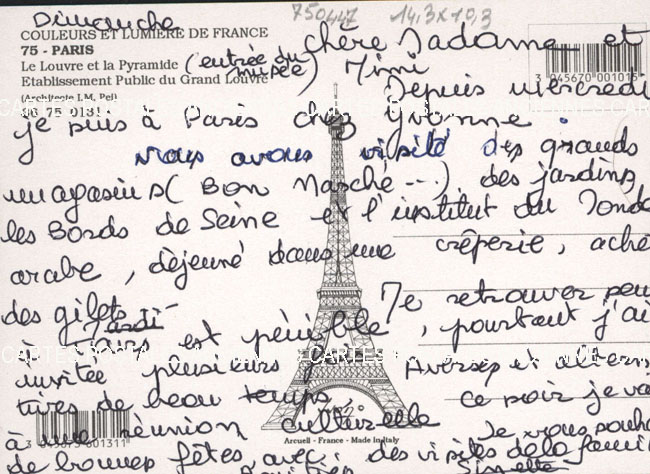 Dimanche
750447 14,3x10,3
COULEURS ET LUMIÈRE DE FRANCE
75 - PARIS
Le Louvre et la Pyramide (entrée du musée)
Etablissement Public du Grand Louvre
(Architecte I.M. Pei)
06 75 0131
3 045670 001015
chère Madame et
Mimi
Depuis mercredi
je suis à Paris chez Yvonne.
nous avons visité des grands
magasins (Bon Marché ...), des jardins
les Bords de Seine et l'institut du Monde
arabe, déjeuné dans une crêperie, ache
des gilets
Mardi
Je retrouver
à Paris est pénible, pourtant j'ai
invitée plusieurs
Averses et altern
tives de beau temps, ce soir je va
à une réunion culturelle
Je vous souh
de bonnes fêtes avec des visites de la famil
3 045670 001311
Arcueil - France - Made in Italy